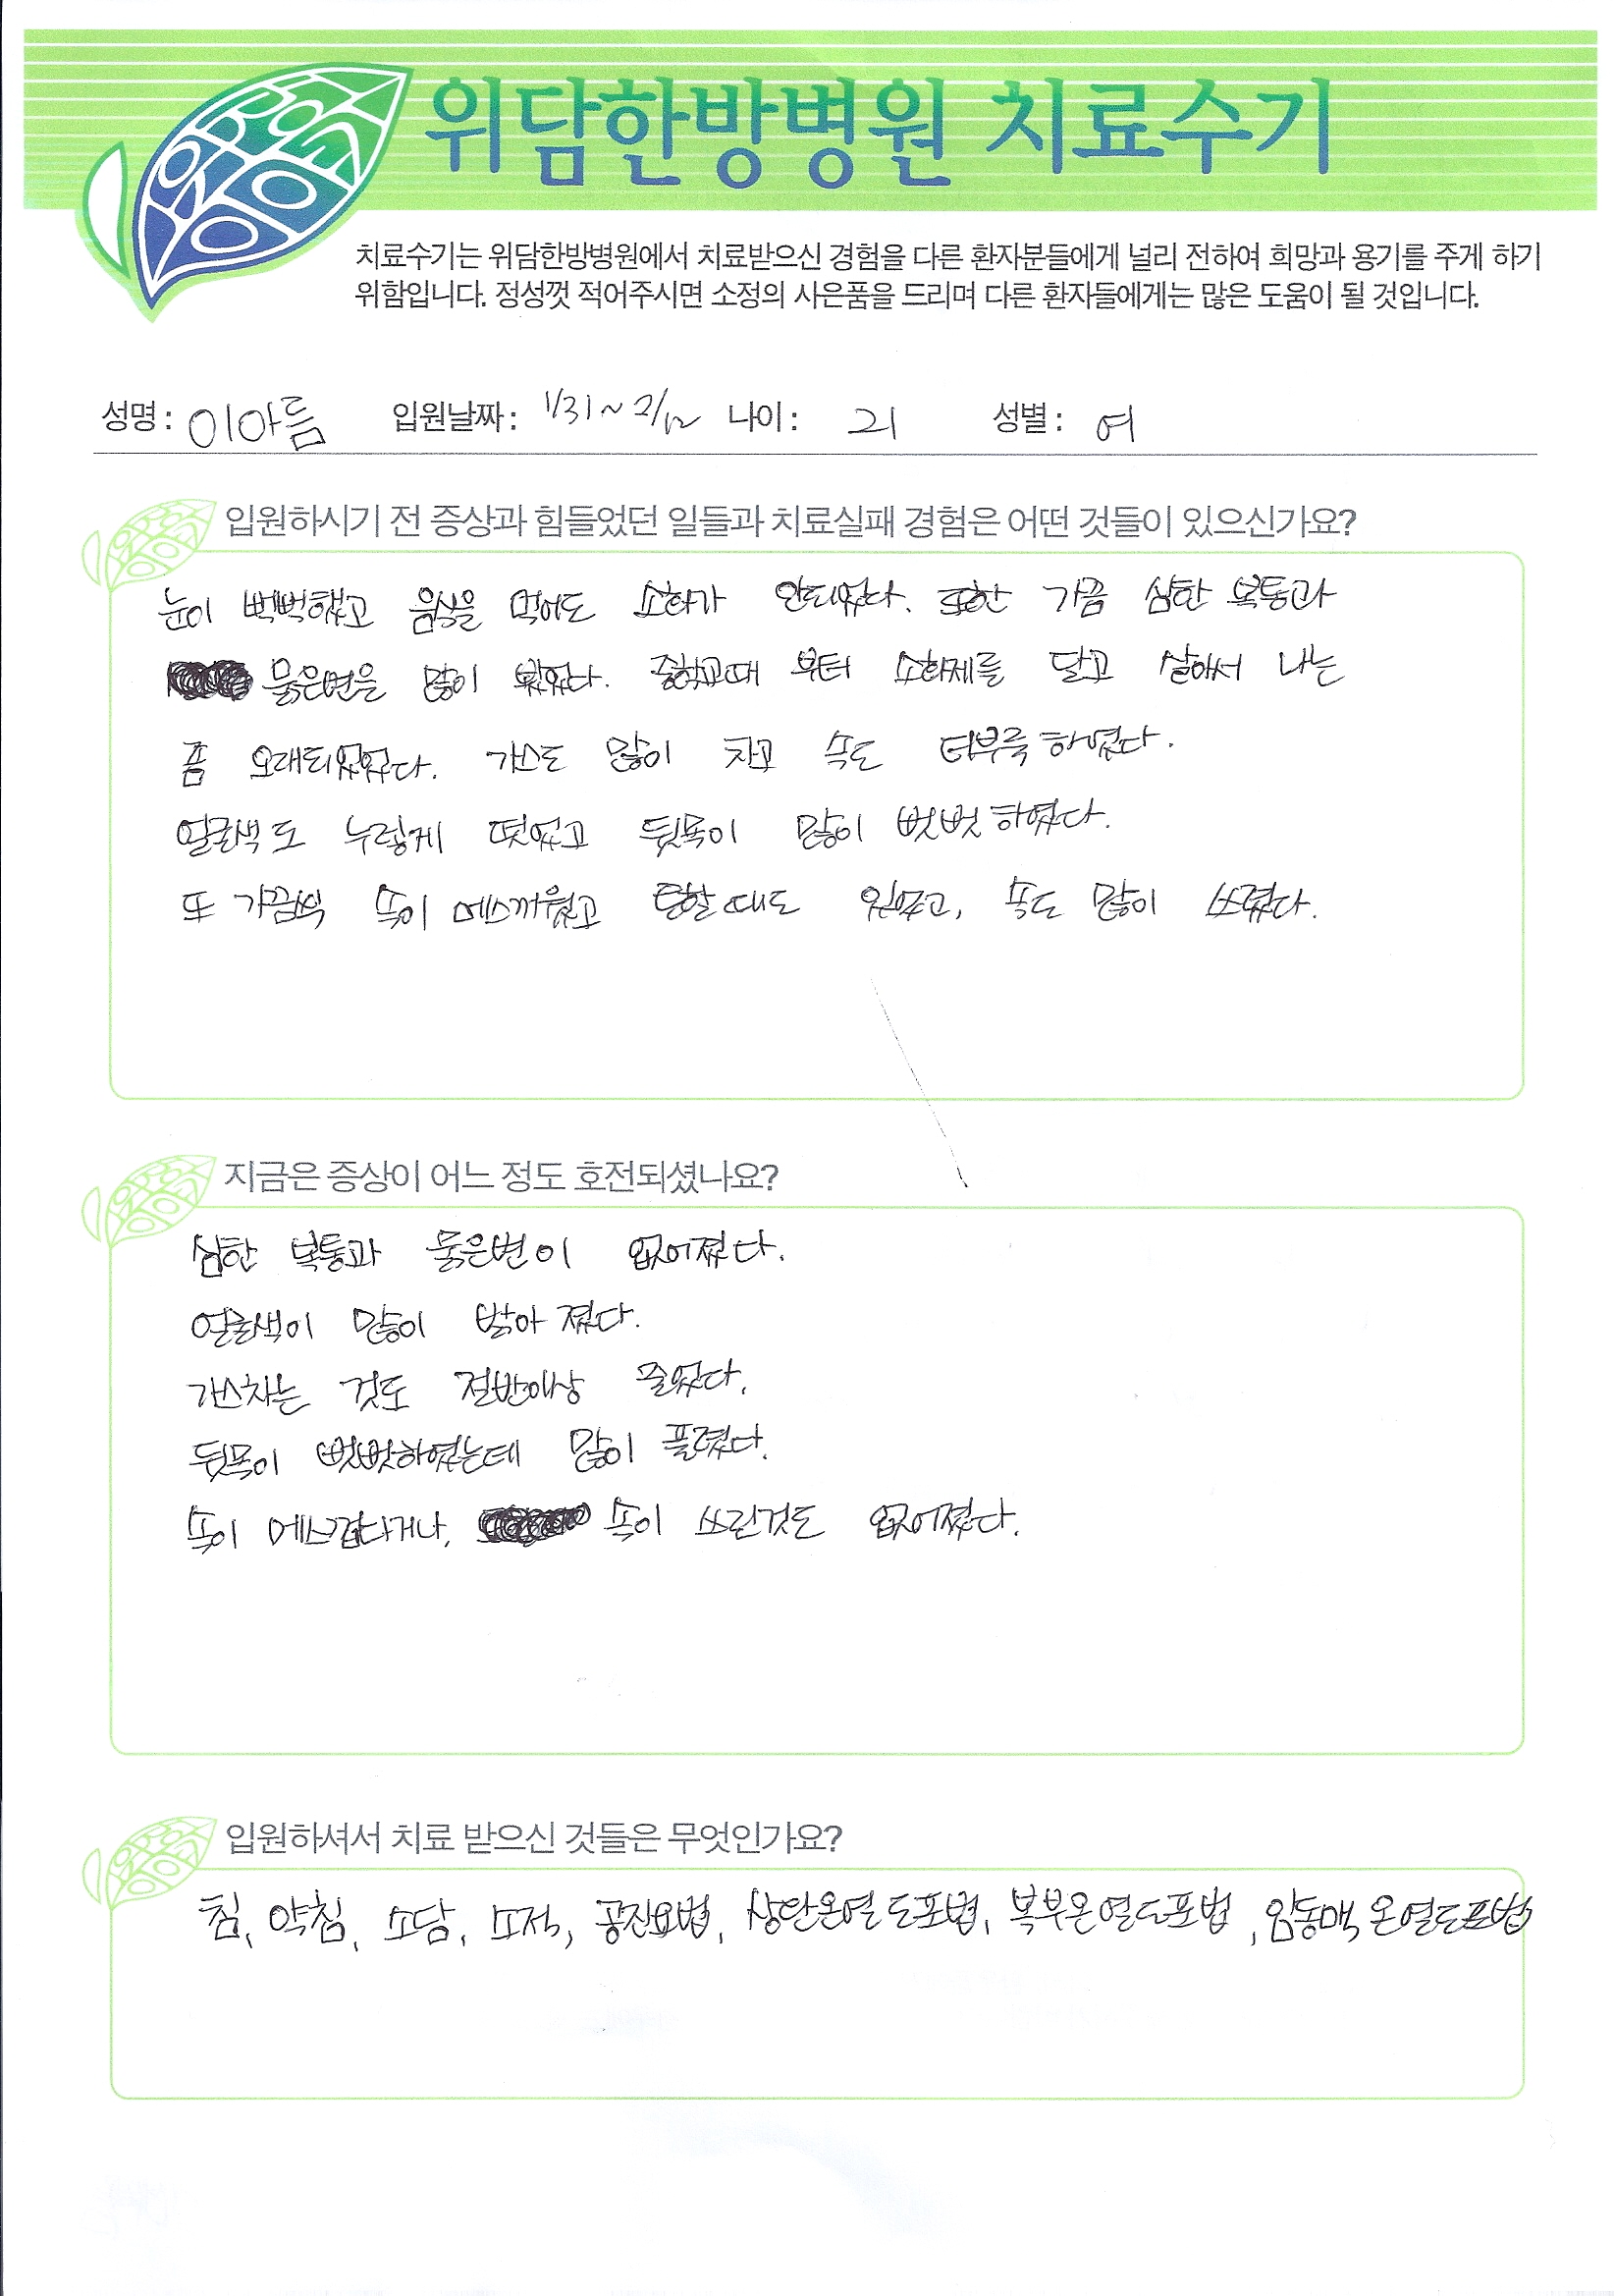 위담한방병원 치료수기
치료수기는 위담한방병원에서 치료받으신 경험을 다른 환자분들에게 널리 전하여 희망과 용기를 주게 하기
위함입니다. 정성껏 적어주시면 소정의 사은품을 드리며 다른 환자들에게는 많은 도움이 될 것입니다.
성명 : 이아름 입원날짜 : 1/31 ~ 2/12 나이 : 21 성별 : 여
입원하시기 전 증상과 힘들었던 일들과 치료실패 경험은 어떤 것들이 있으신가요?
눈이 뻑뻑했고 음식을 먹어도 소화가 안되었다. 또한 가끔 심한 복통과
묽은변을 많이 봤었다. 중학교때 부터 소화제를 달고 살아서 나는
좀 오래되었었다. 가스도 많이 차고 속도 더부룩 하였다.
얼굴색도 누렇게 떳었고 뒷목이 많이 뻣뻣 하였다.
또 가끔씩 속이 메스꺼웠고 토할때도 있었고, 속도 많이 쓰렸다.
지금은 증상이 어느 정도 호전되셨나요?
심한 복통과 묽은변이 없어졌다.
얼굴색이 많이 밝아 졌다.
가스차는 것도 절반이상 줄었다.
뒷목이 뻣뻣하였는데 많이 풀렸다.
속이 메스껍다거나, 속이 쓰린것도 없어졌다.
입원하셔서 치료 받으신 것들은 무엇인가요?
침, 약침, 소담, 소적, 공진요법, 상완온열도포법, 복부온열도포법, 임동맥 온열도포법